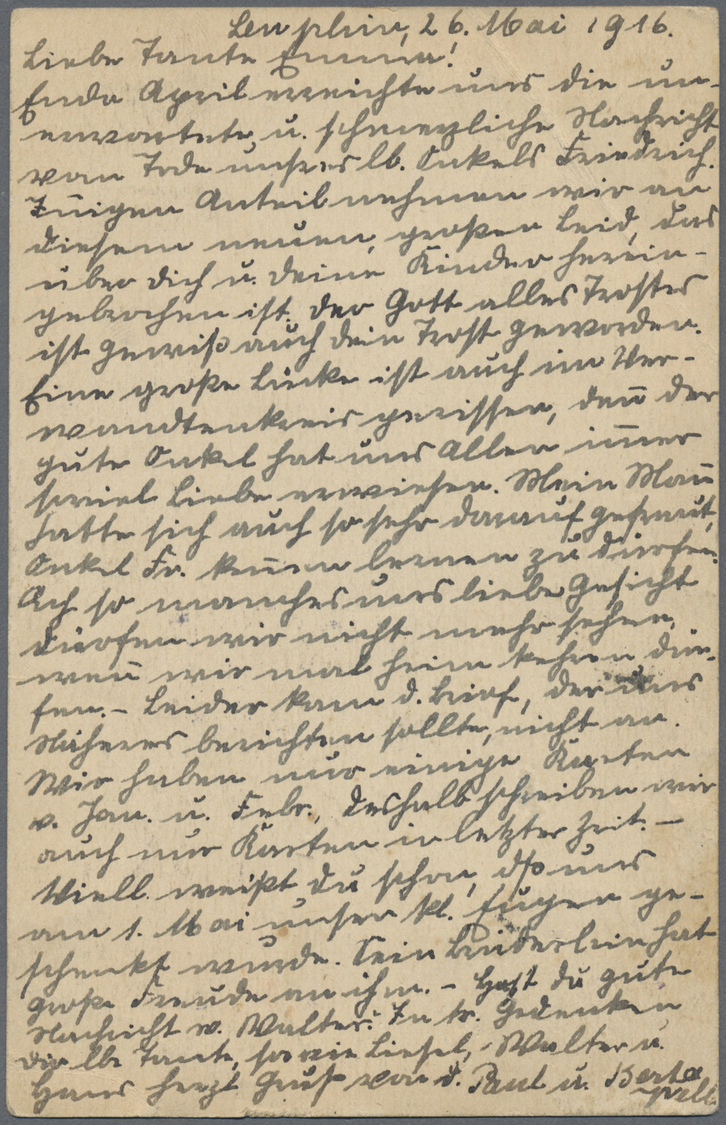 Lenphin, 26. Mai 1916.
Liebe Tante Emma!
Ende April erreichte uns die un-
erwartete u. schmerzliche Nachricht
vom Tode unsres lb. Onkels Friedrich.
Innigen Anteil nehmen wir an
diesem neuen, großen Leid, das
über dich u. deine Kinder herein-
gebrochen ist. Der Gott alles Trostes
ist gewiß auch dein Trost geworden.
Eine große Lücke ist auch im Ver-
wandtenkreis gerissen, den̄ der
gute Onkel hat uns Allen im̄er
soviel Liebe erwiesen. Mein Man̄
hatte sich auch so sehr darauf gefreut,
Onkel Fr. ken̄en lernen zu dürfen.
Ach so manches uns liebe Gesicht
dürfen wir nicht mehr sehen,
wen̄ wir mal heim kehren dür-
fen. – Leider kam d. Brief, der uns
Näheres berichten sollte, nicht an.
Wir haben nur einige Karten
v. Jan. u. Febr., deshalb schreiben wir
auch nur Karten in letzter Zeit. –
Viell. weißt du schon, dß uns
am 1. Mai unser kl. Eugen ge-
schenkt wurde. Sein Brüderlein hat
große Freude an ihm. – Hast du gute
Nachricht v. Walter? In tr. Gedenken
dir lb. Tante, sowie Liesel, Walter u.
Hans herzl. Gruß von d. Paul u. Berta